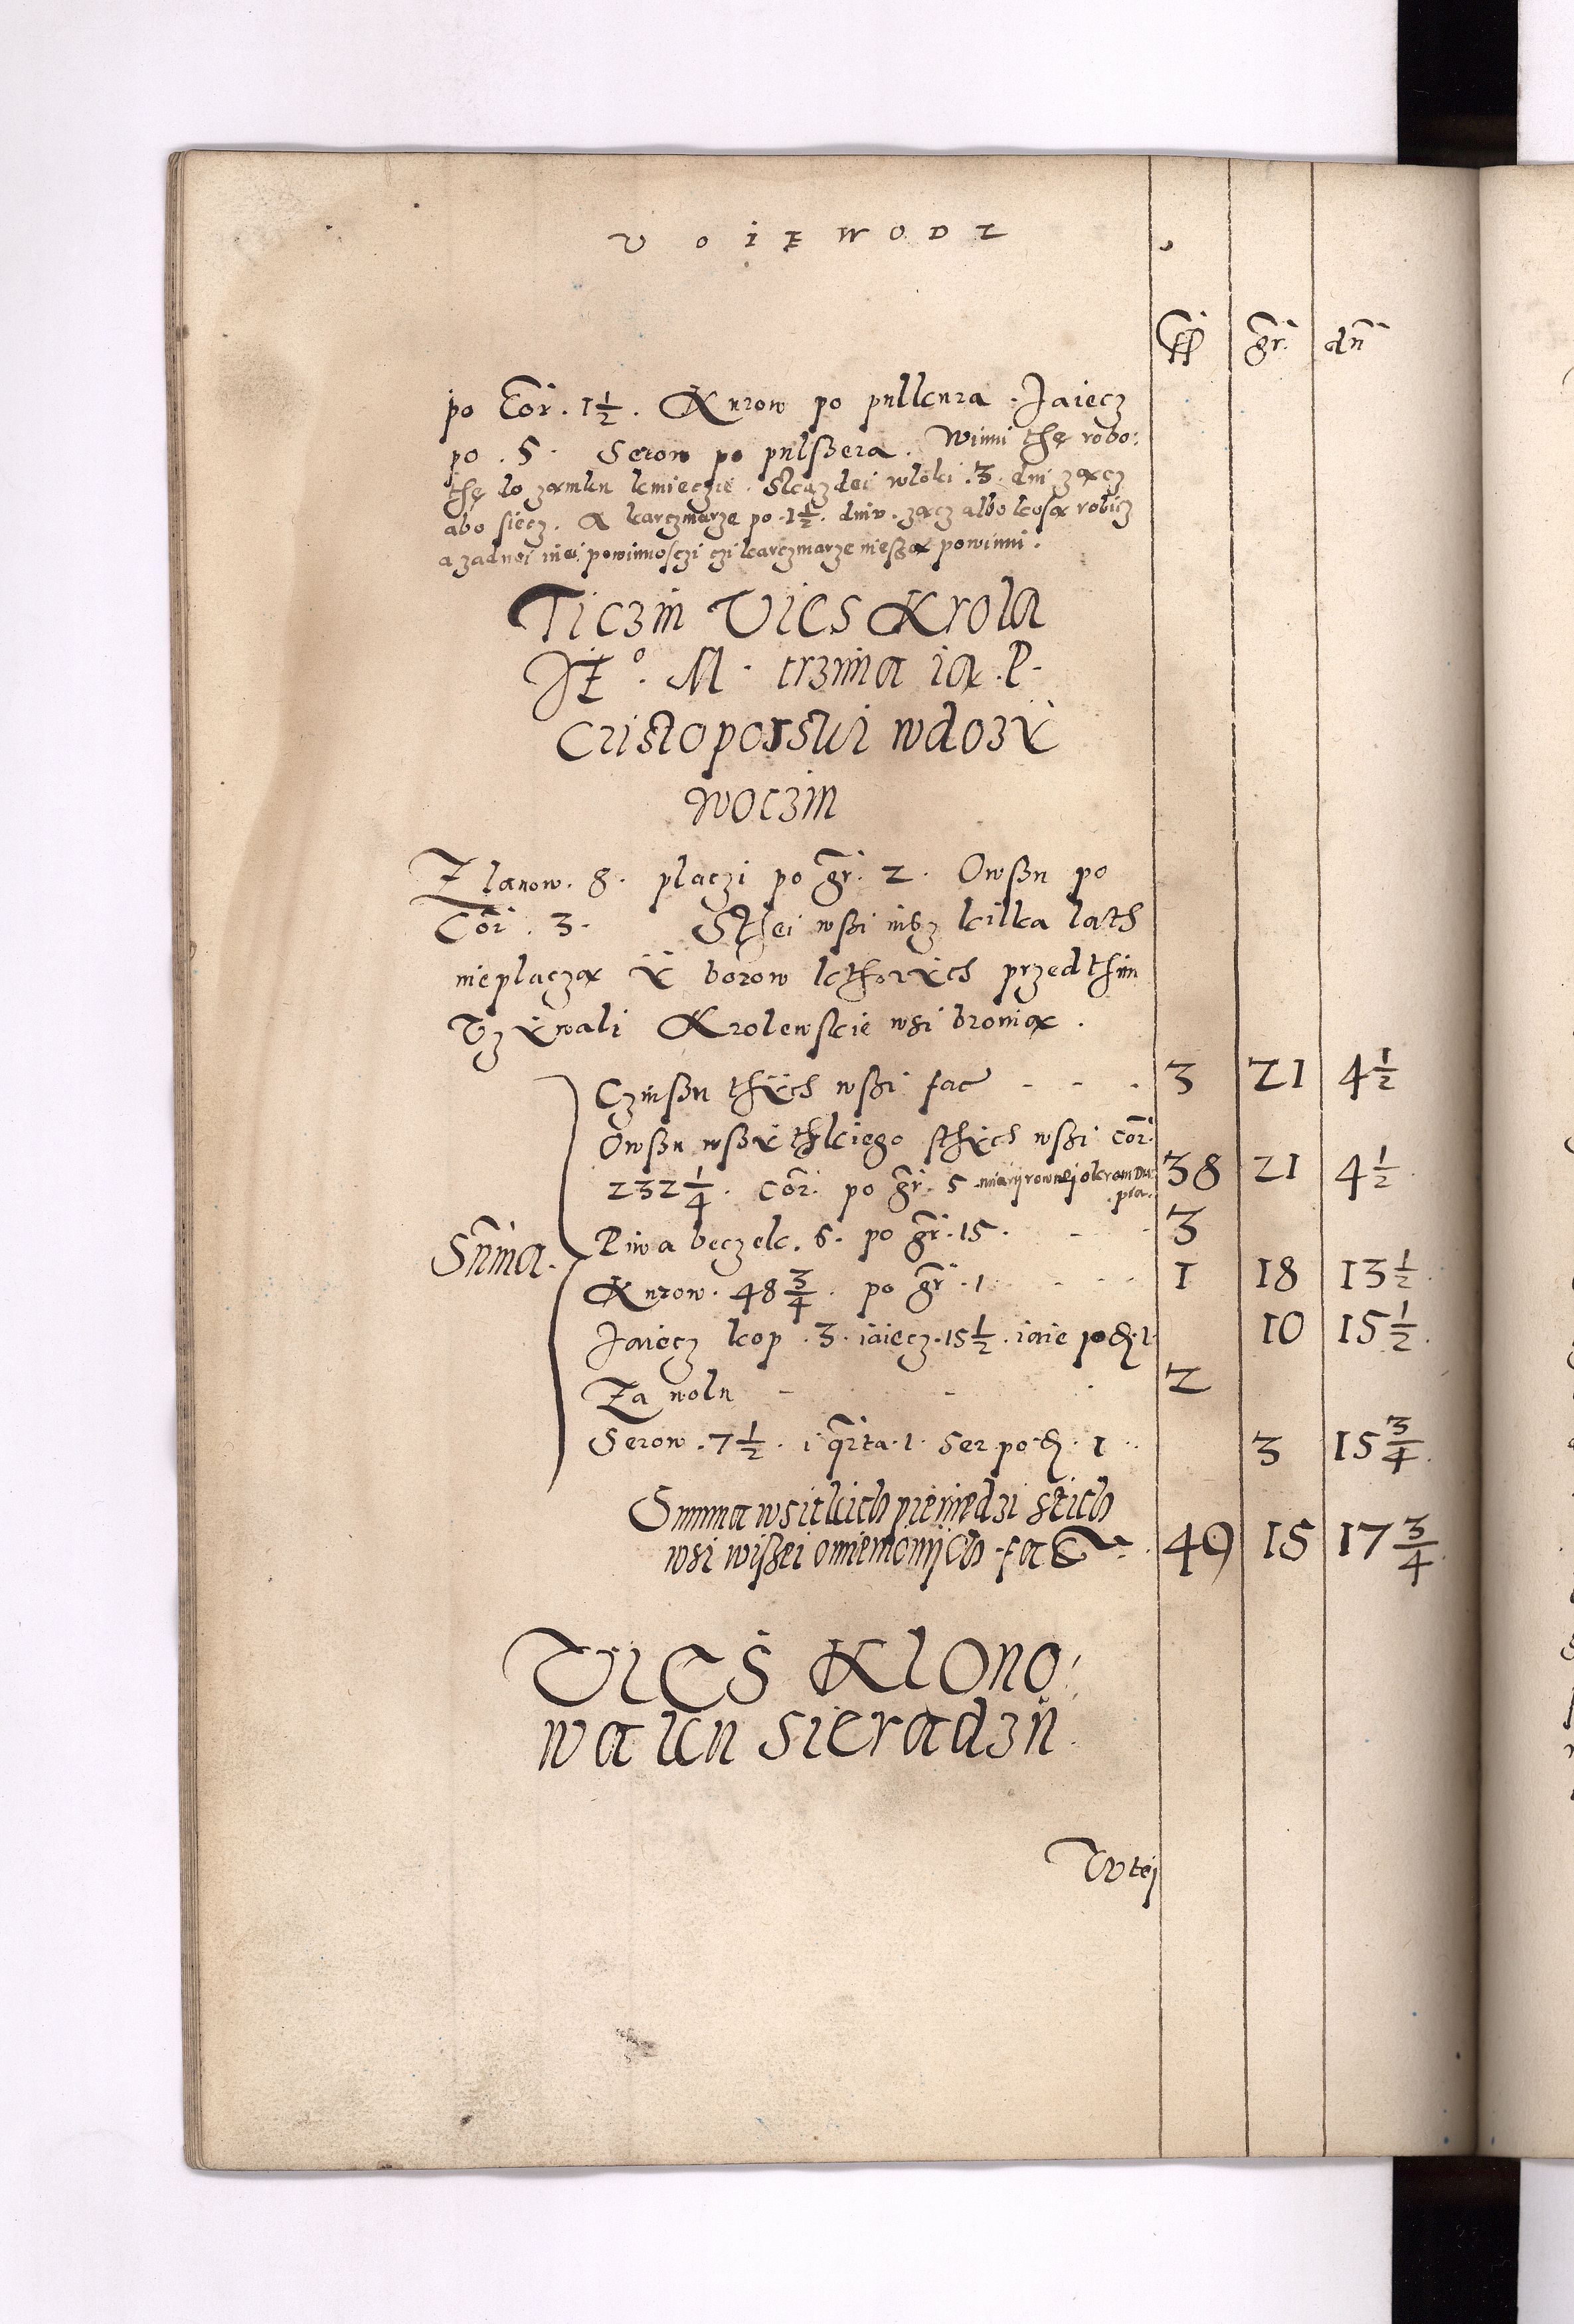 VOIEWODZ
ff gr. dn
po Cor. 1½. Kurow po pullkura. Jaiecz
po. 5. Serow po pulßera. Winni thę robo:
thę do zamku kmieczie. Skazdei wloki. 3. dni zącz
abo siecz. A karczmarze po. 1½. dniu. zącz albo kosą robicz
a zadnei inei powinnosczi czi karczmarze nieszą powinni.
Ticzin Vies Krola
JE°. M. trzima ią. P.
Cristoporski wdozÿ
woczin
Z lanow. 8. placzi po gr. 2. Owßu po
Cor. 3. Sthei wßi iusz kilka lath
nieplaczą ÿ borow kthorÿch przedthim
Vzÿwali Krolewskie wsi bronią.
Czinßu thÿch wßi fac - - - 3 21 4½
Owßu wßÿthkiego sthÿch wßi cor.
232¼. Cor. po gr. 5 miarÿ rownej 38 21 4½
Piwa beczek. 6. po gr. 15. - - 3
Suma.
Kurow. 48¾. po gr. 1 - - - 1 18 13½.
Jaiecz kop. 3. iaiecz. 15½. iaie po đ. 1. 10 15½.
Za wolu - - . 2
Serow. 7½. i qrta. 1. Ser po đ. 1.. 3 15¾.
Summa wsitkich pieniędzi stich
wsi wißei omienionÿch fac 49 15 17¾.
Vies Klono:
wa ku Sieradzu.
Wtej